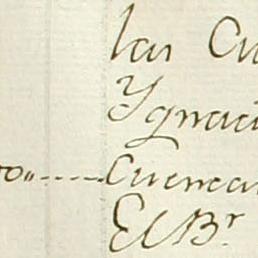 las Cu
Ygnaci
ro,,-----Cuenca
El Br.